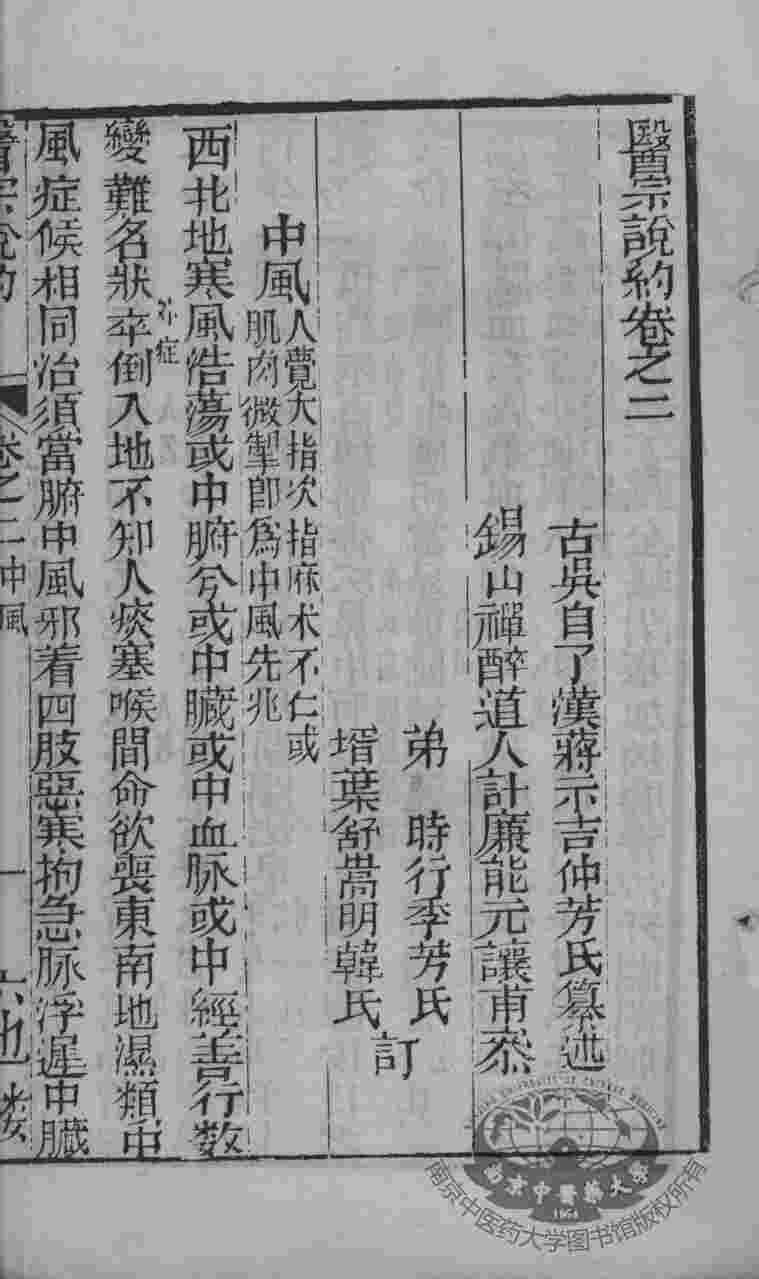 醫宗說約卷之二
古吳自了漢蔣示吉仲芳氏纂述
錫山禪醉道人計廉能元讓甫叅
弟 時行季芳氏
壻葉舒嵩明韓氏
訂
中風
人覺大指次指麻木不仁或
肌肉微掣即爲中風先兆
西北地寒風浩蕩或中腑兮或中臟或中血脉或中經善行数
變難名狀卒倒入地不知人痰塞喉間命欲喪東南地濕類中
外症
風症候相同治須當腑中風邪着四肢惡寒拘急脉浮遲中臟
醫宗說約
卷之二中風
一
南京中醫藥大學
1954
南京中医药大学图书馆版权所有